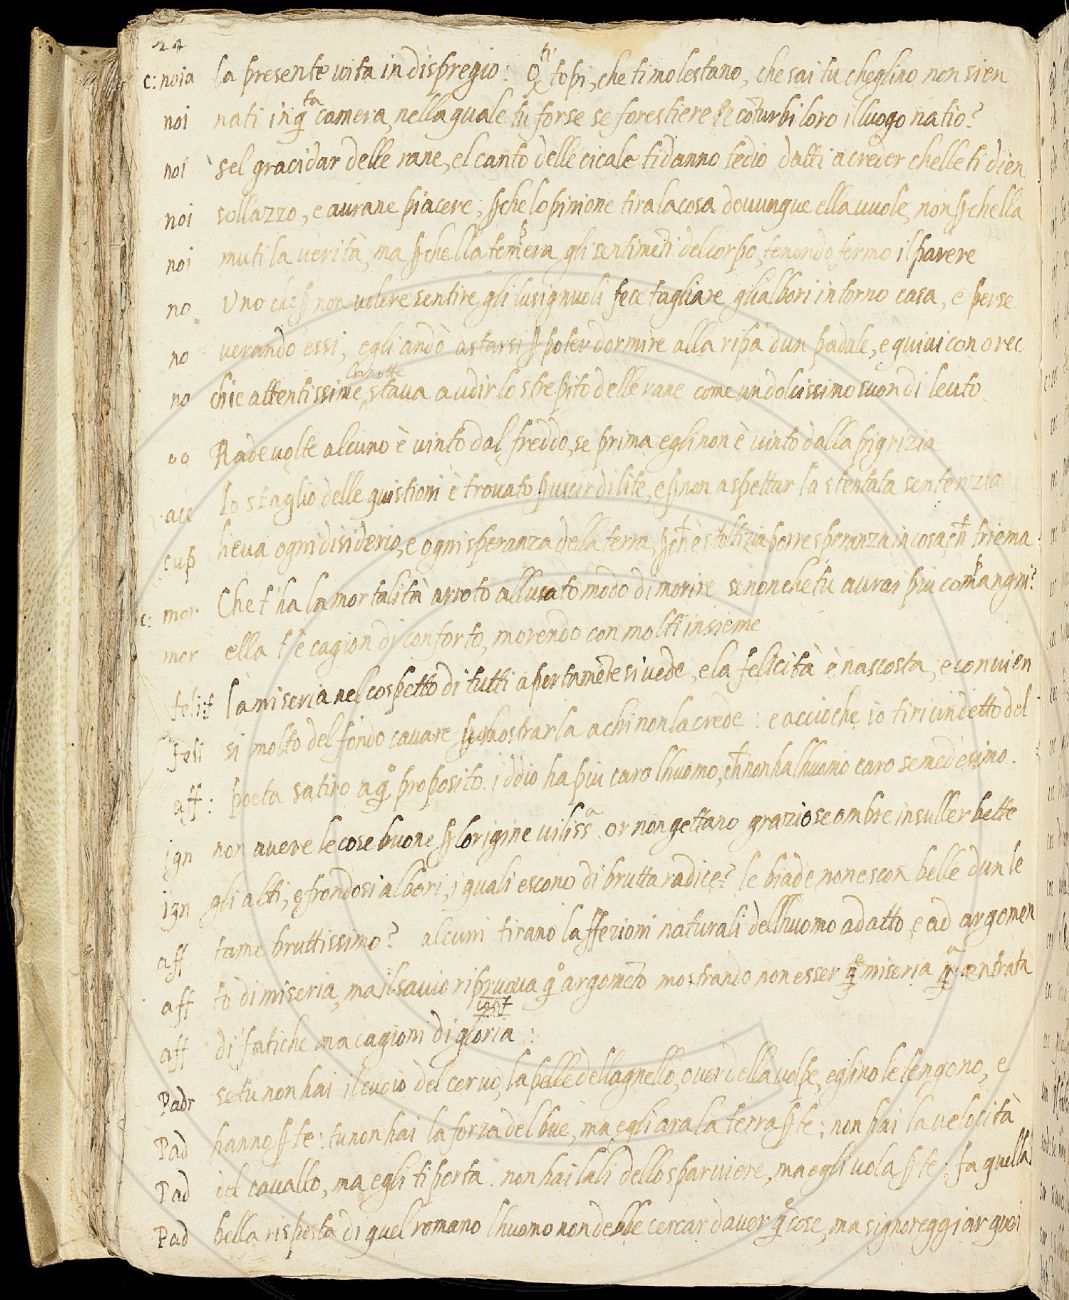 24
c: noia la presente vita in dispregio: Qti topi, che ti molestano, che sai tu cheglino non sien
noi nati in qta camera, nella quale tu forse se forestiere e conturbi loro il luogo natio?
noi sel gracidar delle rane, el canto delle cicale ti danno tedio datti a creder chelle ti dien
noi sollazzo, e avrane piacere, pche lopinione tira la cosa dovunque ella vuole, non pchella
noi muti la verità, ma pchella tempera gli sentimeti del corpo, tenendo fermo il parere
no Uno che p non volere sentire gli lusignuoli fece tagliare glialbori intorno casa, e perse
no verando essi, egli andò a starsi p poter dormire alla ripa dun padule, e quivi con orec
no chie attentissime la notte stava a udir lo strepito delle rane come un dolcissimo suon di leuto
oo Rade volte alcuno è vinto dal freddo, se prima egli non è vinto dalla pigrizia
acc Lo staglio delle quistioni è trovato p uscir di lite, e p non aspettar la stentata sentenzia
cup lieva ogni disiderio, e ogni speranza della terra, pch è stoltizia porre speranza in cosa, ch triema
c: mor Che t ha la mortalità arroto allusato modo di morire se non che tu avrai piu compangni?
mor ella t è cagion di conforto, morendo con molti insieme
felit la miseria nel cospetto di tutti apertamete si vede, e la felicità è nascosta, e convien
feli si molto del fondo cavare p mostrarla a chi non la crede: e accioche io tiri un detto del
aff: poeta satiro a qo proposito. iddio ha piu caro lhuomo, ch non ha lhuomo caro se medesimo.
ign non avere le cose buone p lorigine vilissa or non gettano graziose ombre in sullerbette
ign gli alti, e frondosi albori, i quali escono di brutta radice? le biade non escon belle dun le
aff tame bruttissimo? alcuni tirano laffezioni naturali dellhuomo ad atto, e ad argomen
aff to di miseria, ma il savio ripruova qo argometo mostrando non esser qe miseria qa entrata
aff di fatiche ma cagioni di gloria:
Padr se tu non hai il cuoio del cervo, la pelle dellagnello, over della volpe, eglino le tengono, e
Pad hanno p te: tu non hai la forza del bue, ma egli ara la terra p te; non hai la velocità
Pad del cavallo, ma egli ti porta. non hai lali dello sparviere, ma egli vola p te: fa quella
Pad bella risposta di quel romano lhuomo non debbe cercar daver qe cose, ma signoreggiar quei